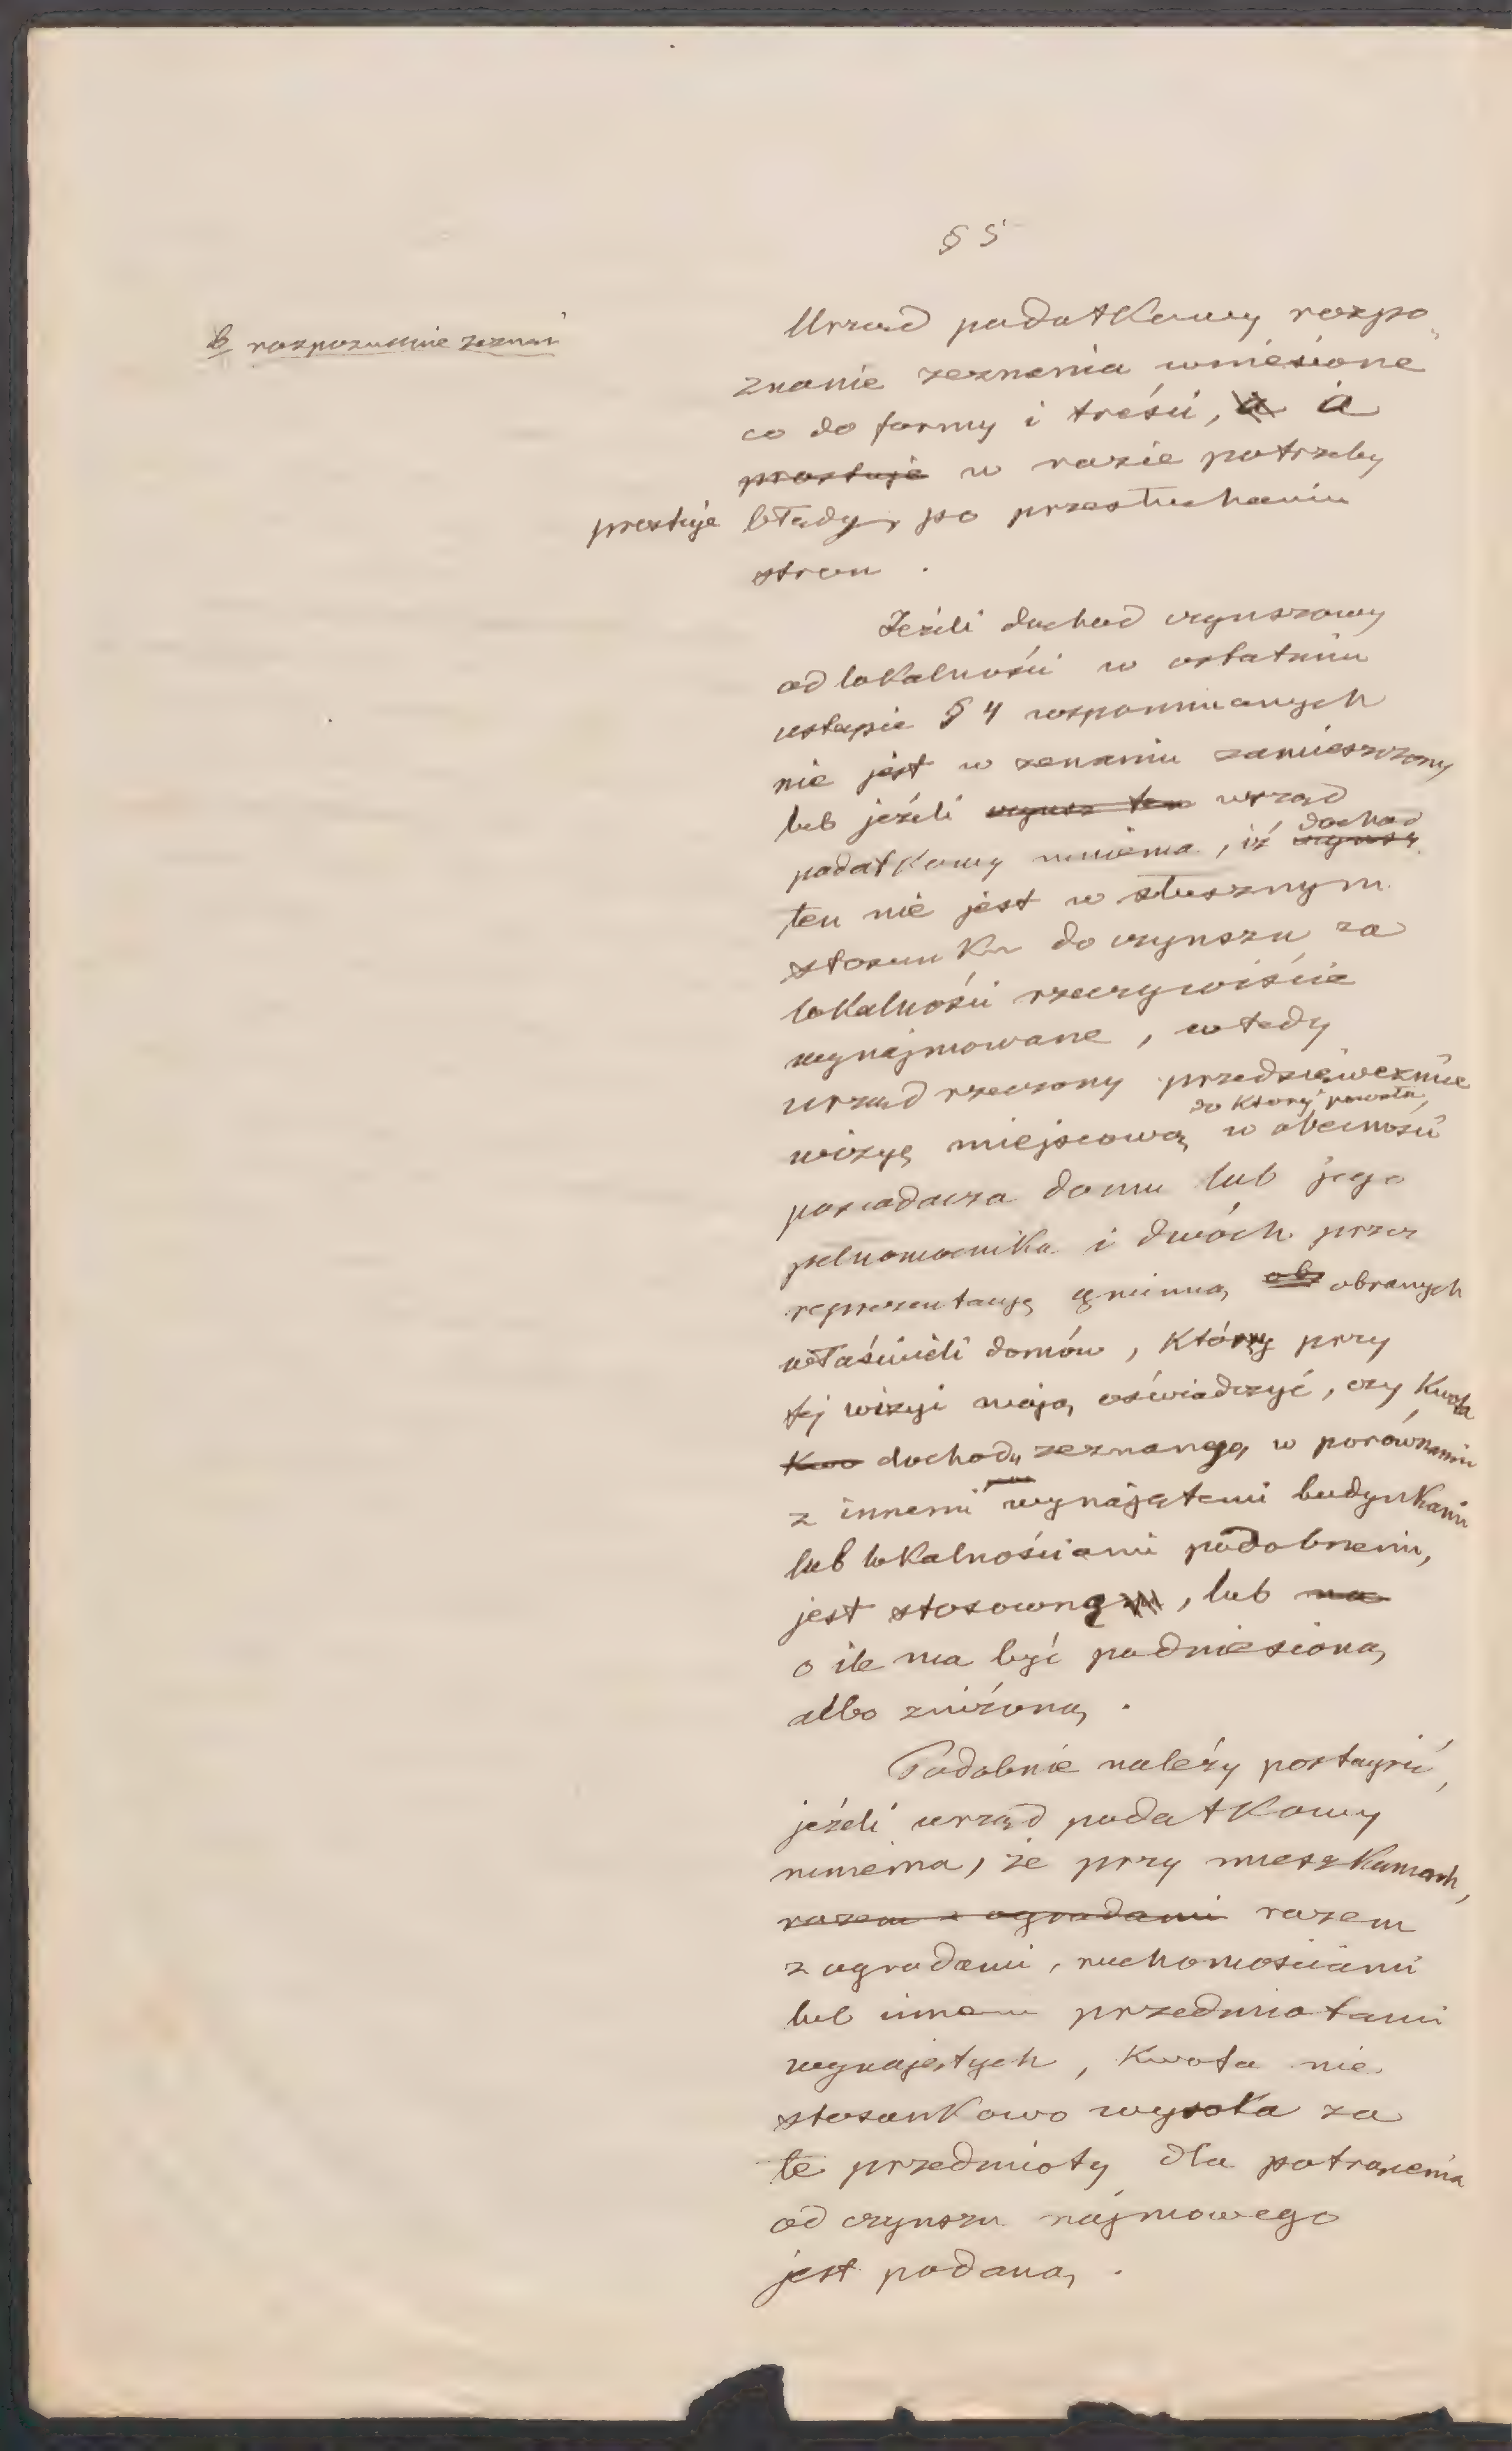 § 5
b rozpoznanie zeznań
Urząd podatkowy rozpo„
znanie zeznania wniesione
co do formy i treści, a a
prostuje w razie potrzeby
prostuje błędy, po przesłuchaniu
stron .
Jeżeli dochod czynszowy
od lokalności w ostatniu
ustępie § 4 wspomnianych
nie jest w zenaniu zamieszczony
lub jeżeli czynsz ten urząd
dochod
podatkowy mniema, iż czynsz
ten nie jest w słusznym
stosunku do czynszu za
lokalności rzeczywiście
wynajmowane, wtedy
urząd rzeczony przedsięweźmie
do której powoła,
wizyę miejscową w obecności
posiadacza domu lub jego
pełnomocnika i dwóch przez
reprezentacyę gminną obz obranych
właścicieli domów, którzy przy
tej wizyi mają oświadczyć, czy kwota
kwo dochodu zeznanego, w porównaniu
z innemi wynajętemi budynkami
lub lokalnościami podobnemi,
jest stosowną, lub na
o ile ma być podniesioną,
albo zniżoną .
Podobnie należy postąpić,
jeżeli urząd podatkowy
mniema, że przy mieszkaniach,
razem z ogrodami razem
z ogrodami, ruchomościami
lub innemi przedmiotami
wynajętych, kwota nie
stosunkowo wysoka za
te przedmioty dla potrącenia
od czynszu najmowego
jest podaną .